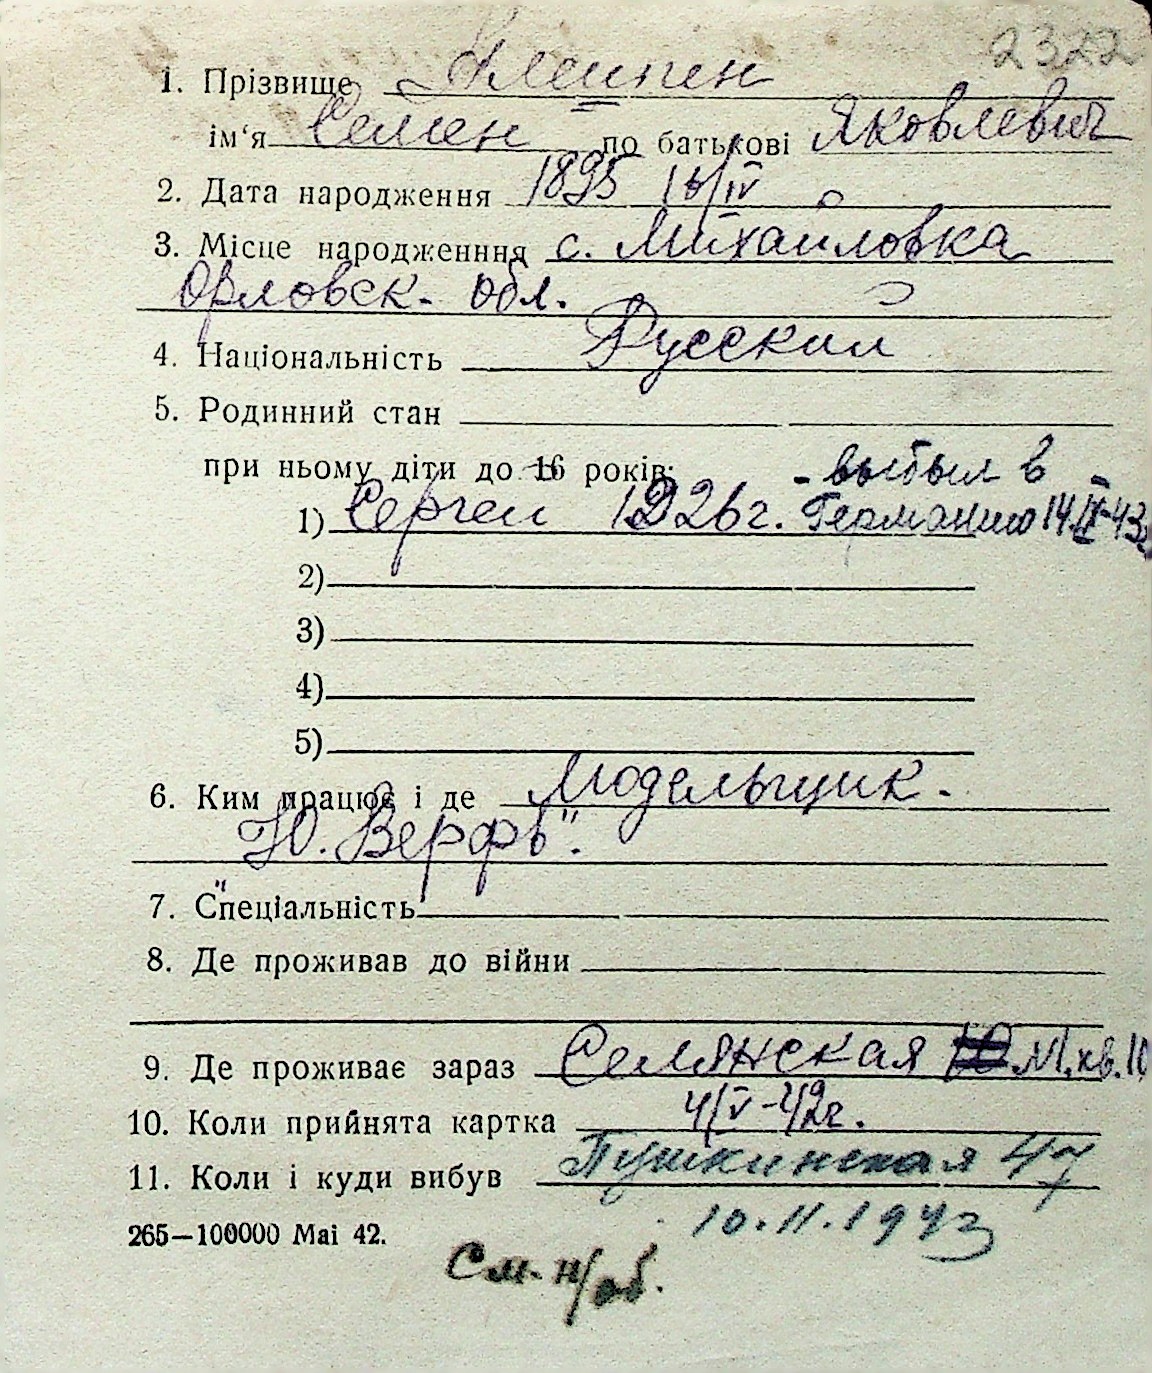 2322
1. Прізвище Алешпен
ім‘я Семен по батькові Яковлевич
2. Дата народження 1895 16/IV
3. Місце народженння с. Михайловка
Орловск. обл.
4. Національність Русский
5. Родинний стан
при ньому діти до 16 років: - выбыл в -
1) Сергей 1926г. Германию 14.IX-43г.
2)
3)
4)
5)
6. Ким працює і де Модельщик.
"Ю. Верфь".
7. Спеціальність
8. Де проживав до війни
9. Де проживає зараз Селянская М. кв. 10
10. Коли прийнята картка 4/V-42г.
11. Коли і куди вибув Пушкинская 47
10.11.1943
265—100000 Mai 42.
См. н/об.